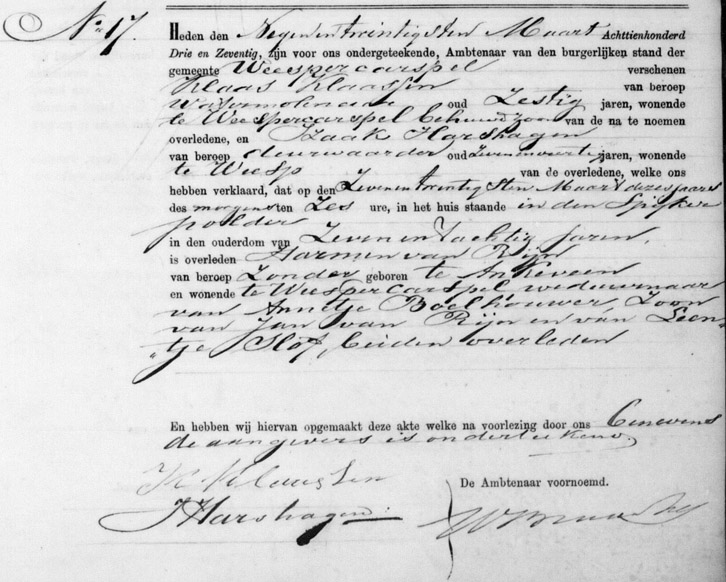 No 17.
Heden den Negen en twintigsten Maart Achttienhonderd
Drie en Zeventig, zijn voor ons ondergeteekende, Ambtenaar van den burgerlijken stand der
gemeente Weespercarspel verschenen
Klaas Klaassen van beroep
Watermolenaar oud Zestig jaren, wonende
te Weespercarspel behuwdzoon van de na te noemen
overledene, en Izaak Harshagen
van beroep deurwaarder oud Zevenenveertig jaren, wonende
te Weesp van de overledene, welke ons
hebben verklaard, dat op den Zeven en twintigsten Maart dezes jaars
des morgens ten Zes ure, in het huis staande in den Spijker
polder
in den ouderdom van Zeven en tachtig Jaren,
is overleden Harmen van Rijn
van beroep Zonder geboren te Ankeveen
en wonende te Weespercarspel weduwnaar
van Annetje Boelhouwer, Zoon
van Jan van Rijn en van Leen-
„tje Slof, beiden overleden
En hebben wij hiervan opgemaakt deze akte welke na voorlezing door ons benevens
de aangevers is onderteekend
K Klaassen
JHarshagen
De Ambtenaar voornoemd.